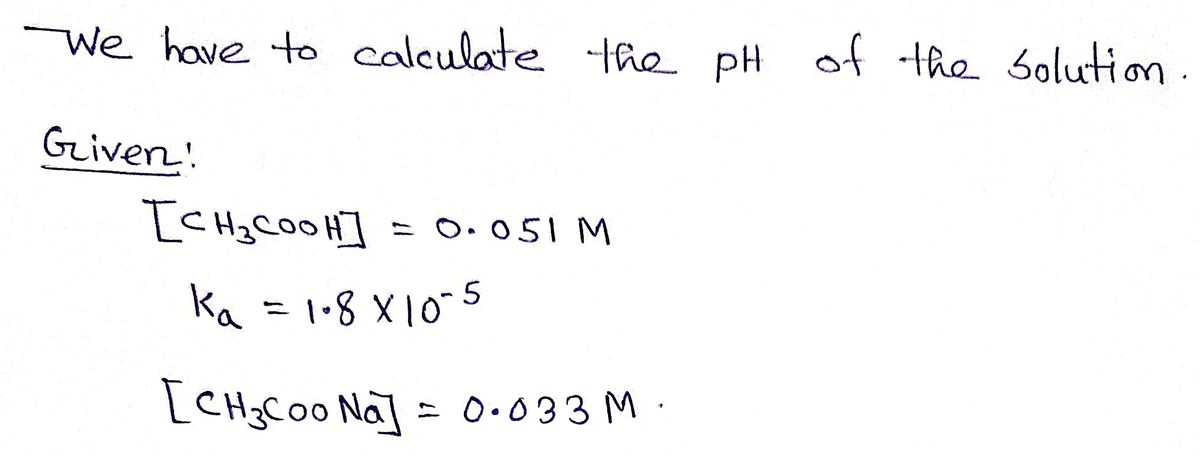 We have to calculate the pH of the solution.
Given:
[CH₃COOH] = 0.051 M
Ka = 1.8 X 10⁻⁵
[CH₃COONa] = 0.033 M.